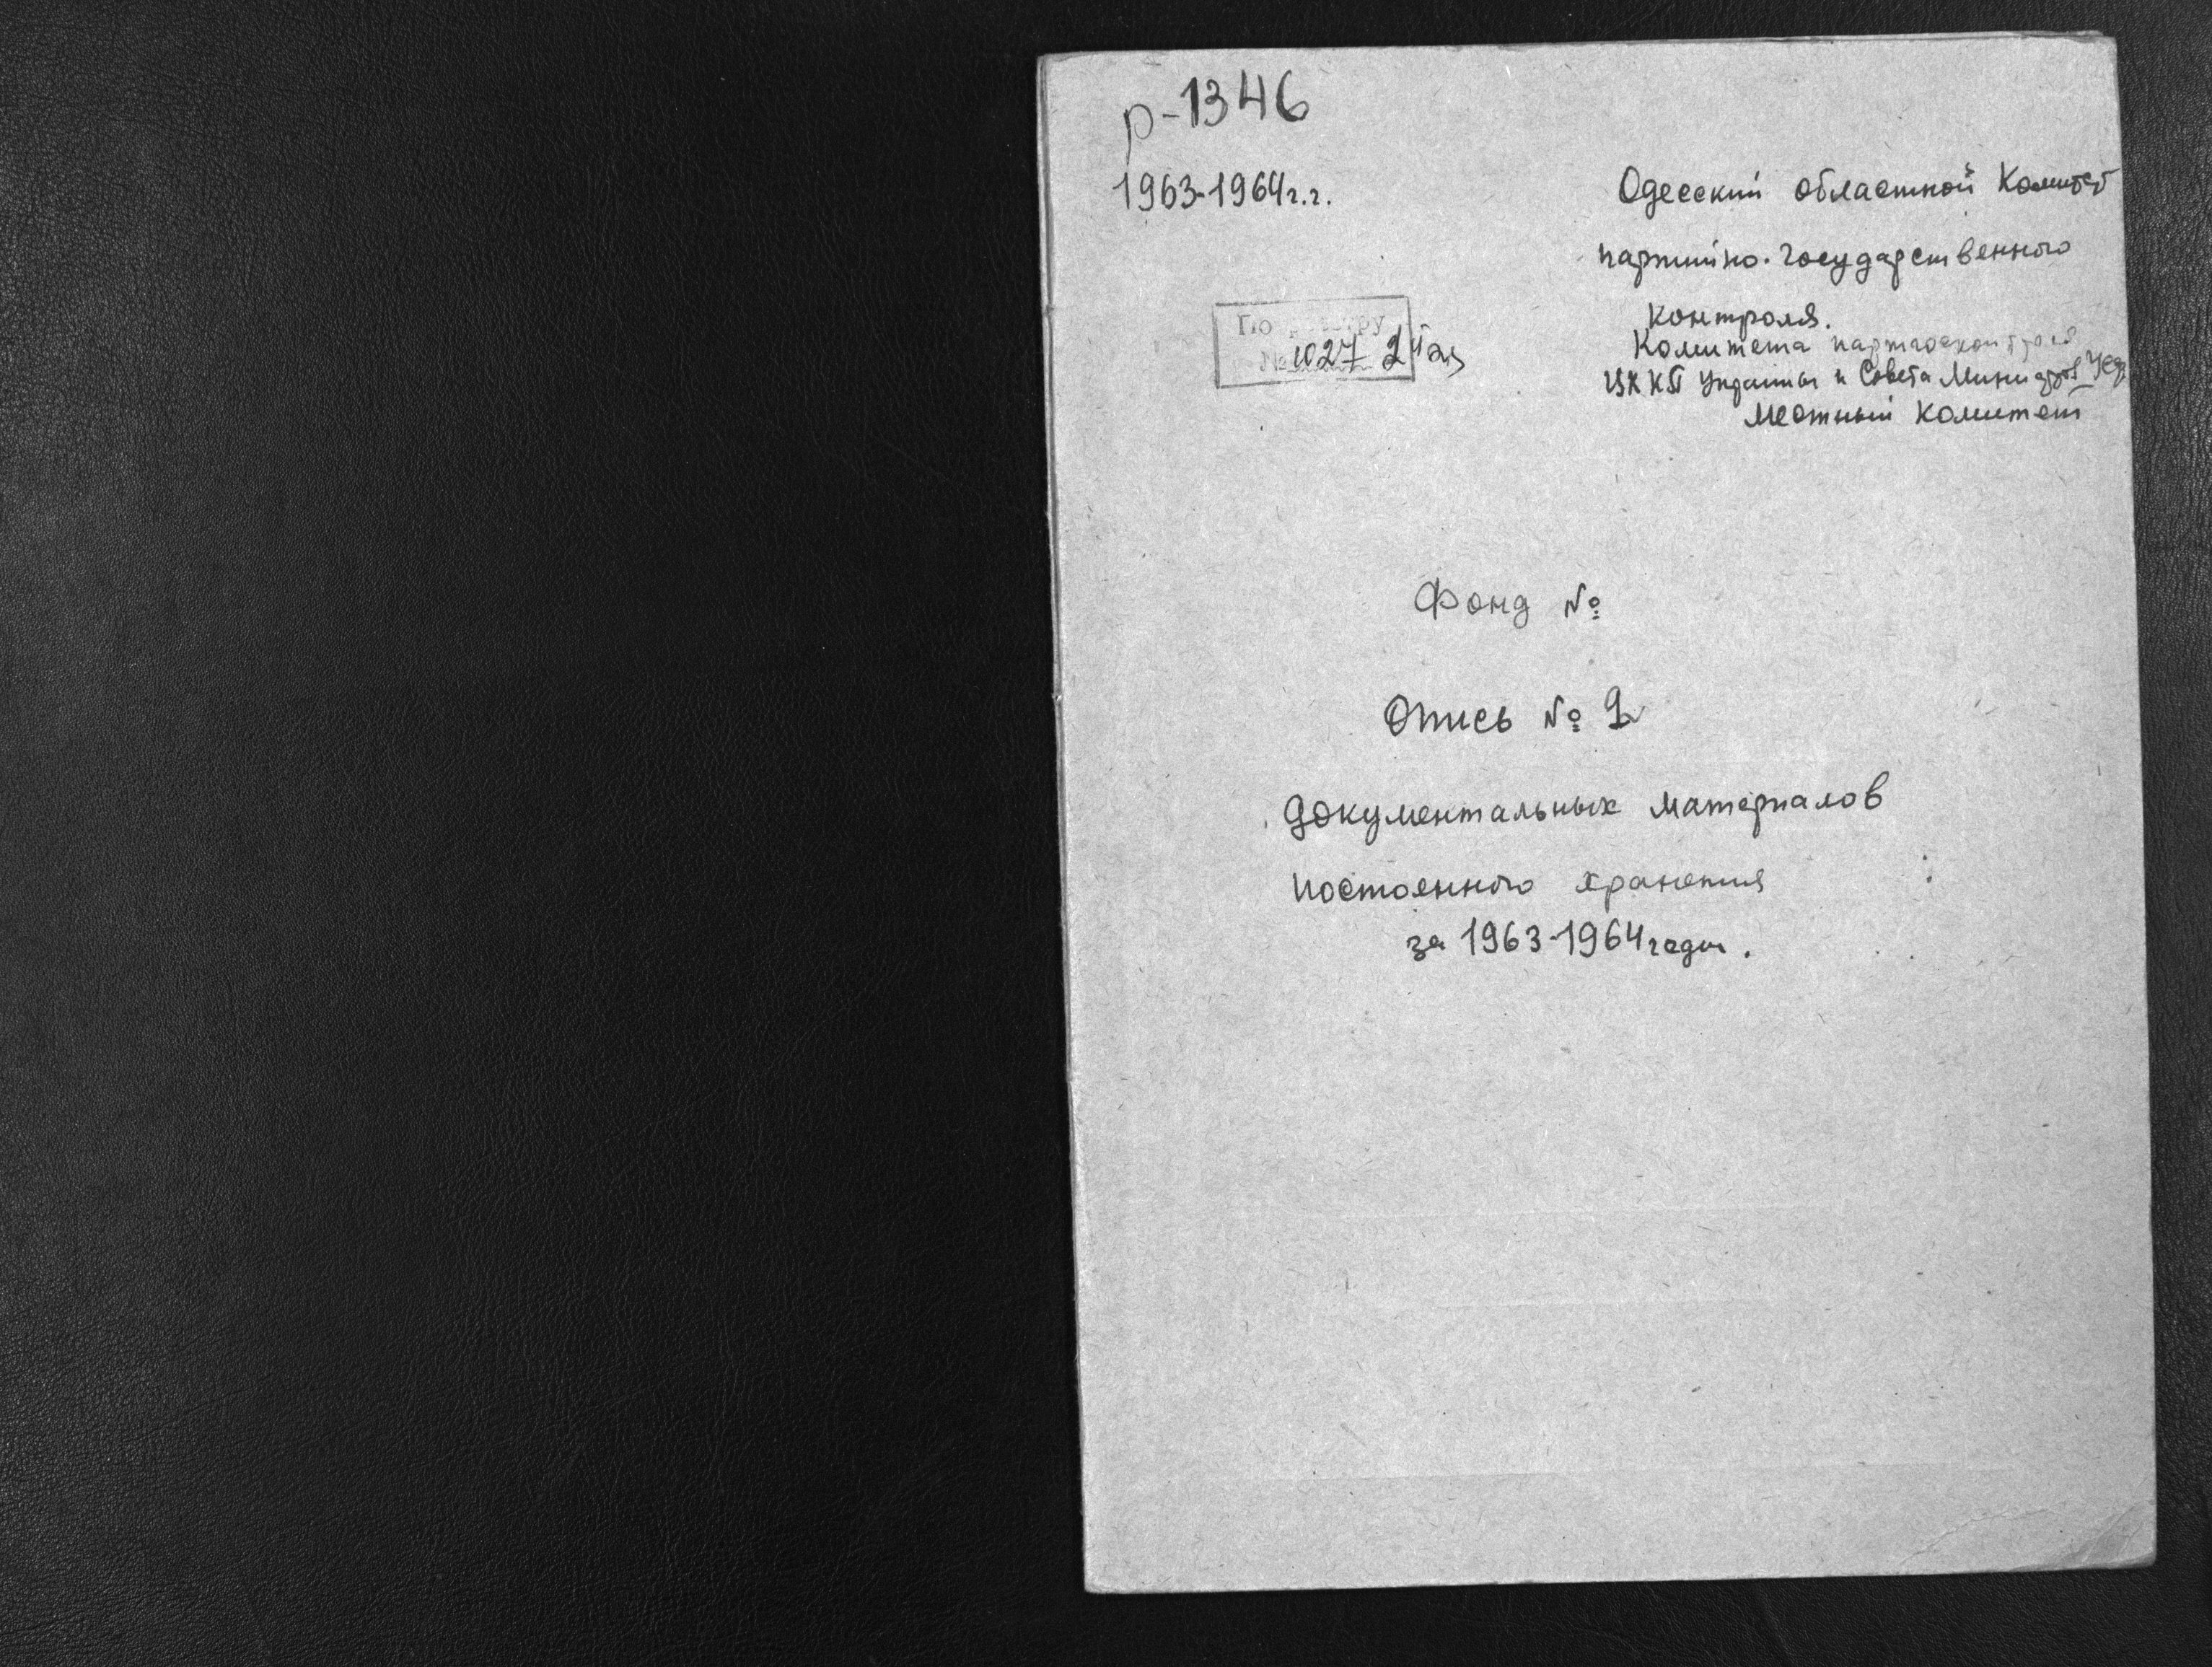 р-1346
1963-1964г.г.
Одесский областной Комитет
партийно-государственного
контроля.
Комитета партгосконтроля
ЦК КП Украины и Совета Министров УССР
Местный комитет
По реестру
№ 1027
Фонд №
Опись № 2
документальных материалов
постоянного хранения
за 1963-1964 годы.